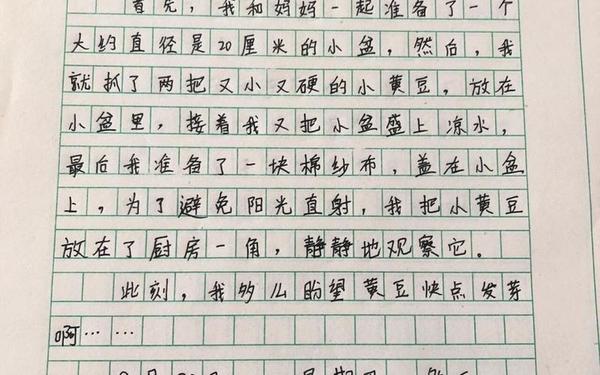 首先，我和妈妈一起准备了一个
大约直径是20厘米的小盆，然后，我
就抓了两把又小又硬的小黄豆，放在
小盆里，接着我又把小盆盛上凉水，
最后我准备了一块棉纱布，盖在小盆
上，为了避免阳光直射，我把小黄豆
放在了厨房一角，静静地观察它。
此刻，我多么盼望黄豆快点发芽
啊……